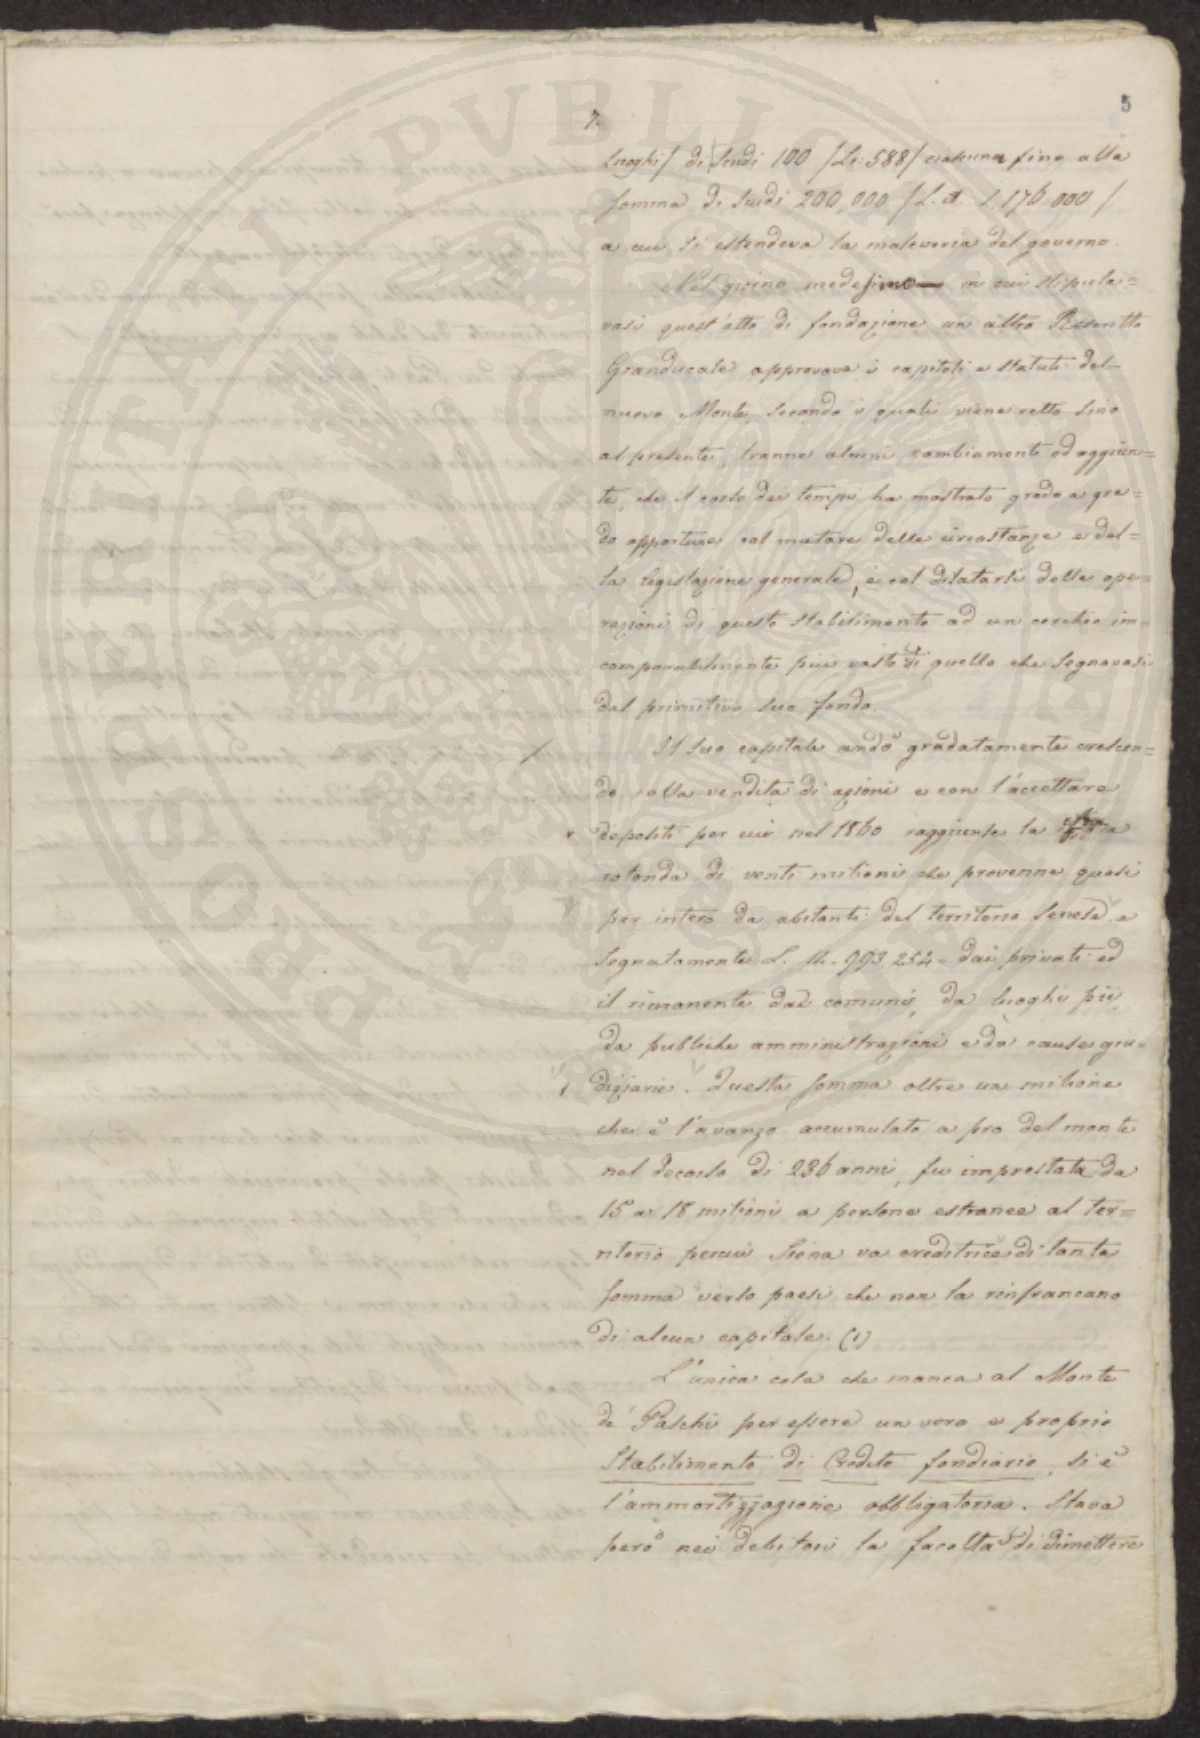 5
7.
luoghi/ di Scudi 100 /Li: 588/ ciascuna fino alla
somma di Scudi 200,000 /L. it. 1.176 000/
a cui si estendeva la maleveria del governo.
Nel giorno medesimo in cui stipula=
vasi quest'atto di fondazione un altro Rescritto
Granducale approvava i capitoli e statuti del
nuovo Monte, secondo i quali viene retto sino
al presente, tranne alcuni cambiamenti ed aggiun=
te, che il corso dei tempi ha mostrato grado a gra=
do opportune col mutare delle circostanze e del=
la legislazione generale, e col dilatarsi delle ope=
razioni di questo stabilimento ad un cerchio in=
comparabilmente più vasto di quello che segnavasi
dal primitivo suo fondo.
Il suo capitale andò gradatamente crescen=
do colla vendita di azioni e con l'accettare
depositi per cui nel 1860 raggiunse la cifra
rotonda di venti milioni che provenne quasi
per intero da abitanti del territorio senese, e
segnatamente L. 11.993.254= dai privati ed
il rimanente dai comuni, da luoghi pii,
da publiche amministrazioni e da cause giu=
diziarie. Questa somma oltre un milione
che è l'avanzo accumulato a pro del monte
nel decorso di 236 anni, fu imprestata da
15 a 18 milioni a persone estranee al ter=
ritorio percui Siena va creditrice di tanta
somma verso paesi che non la rinfrancano
di alcun capitale. (1)
L'unica cosa che manca al Monte
de' Paschi per essere un vero e proprio
Stabilimento di Credito fondiario, si è
l'ammortizzazione obbligatoria. Stava
però nei debitori la facoltà di dimettere
PROSPERITATI PVBLICAE